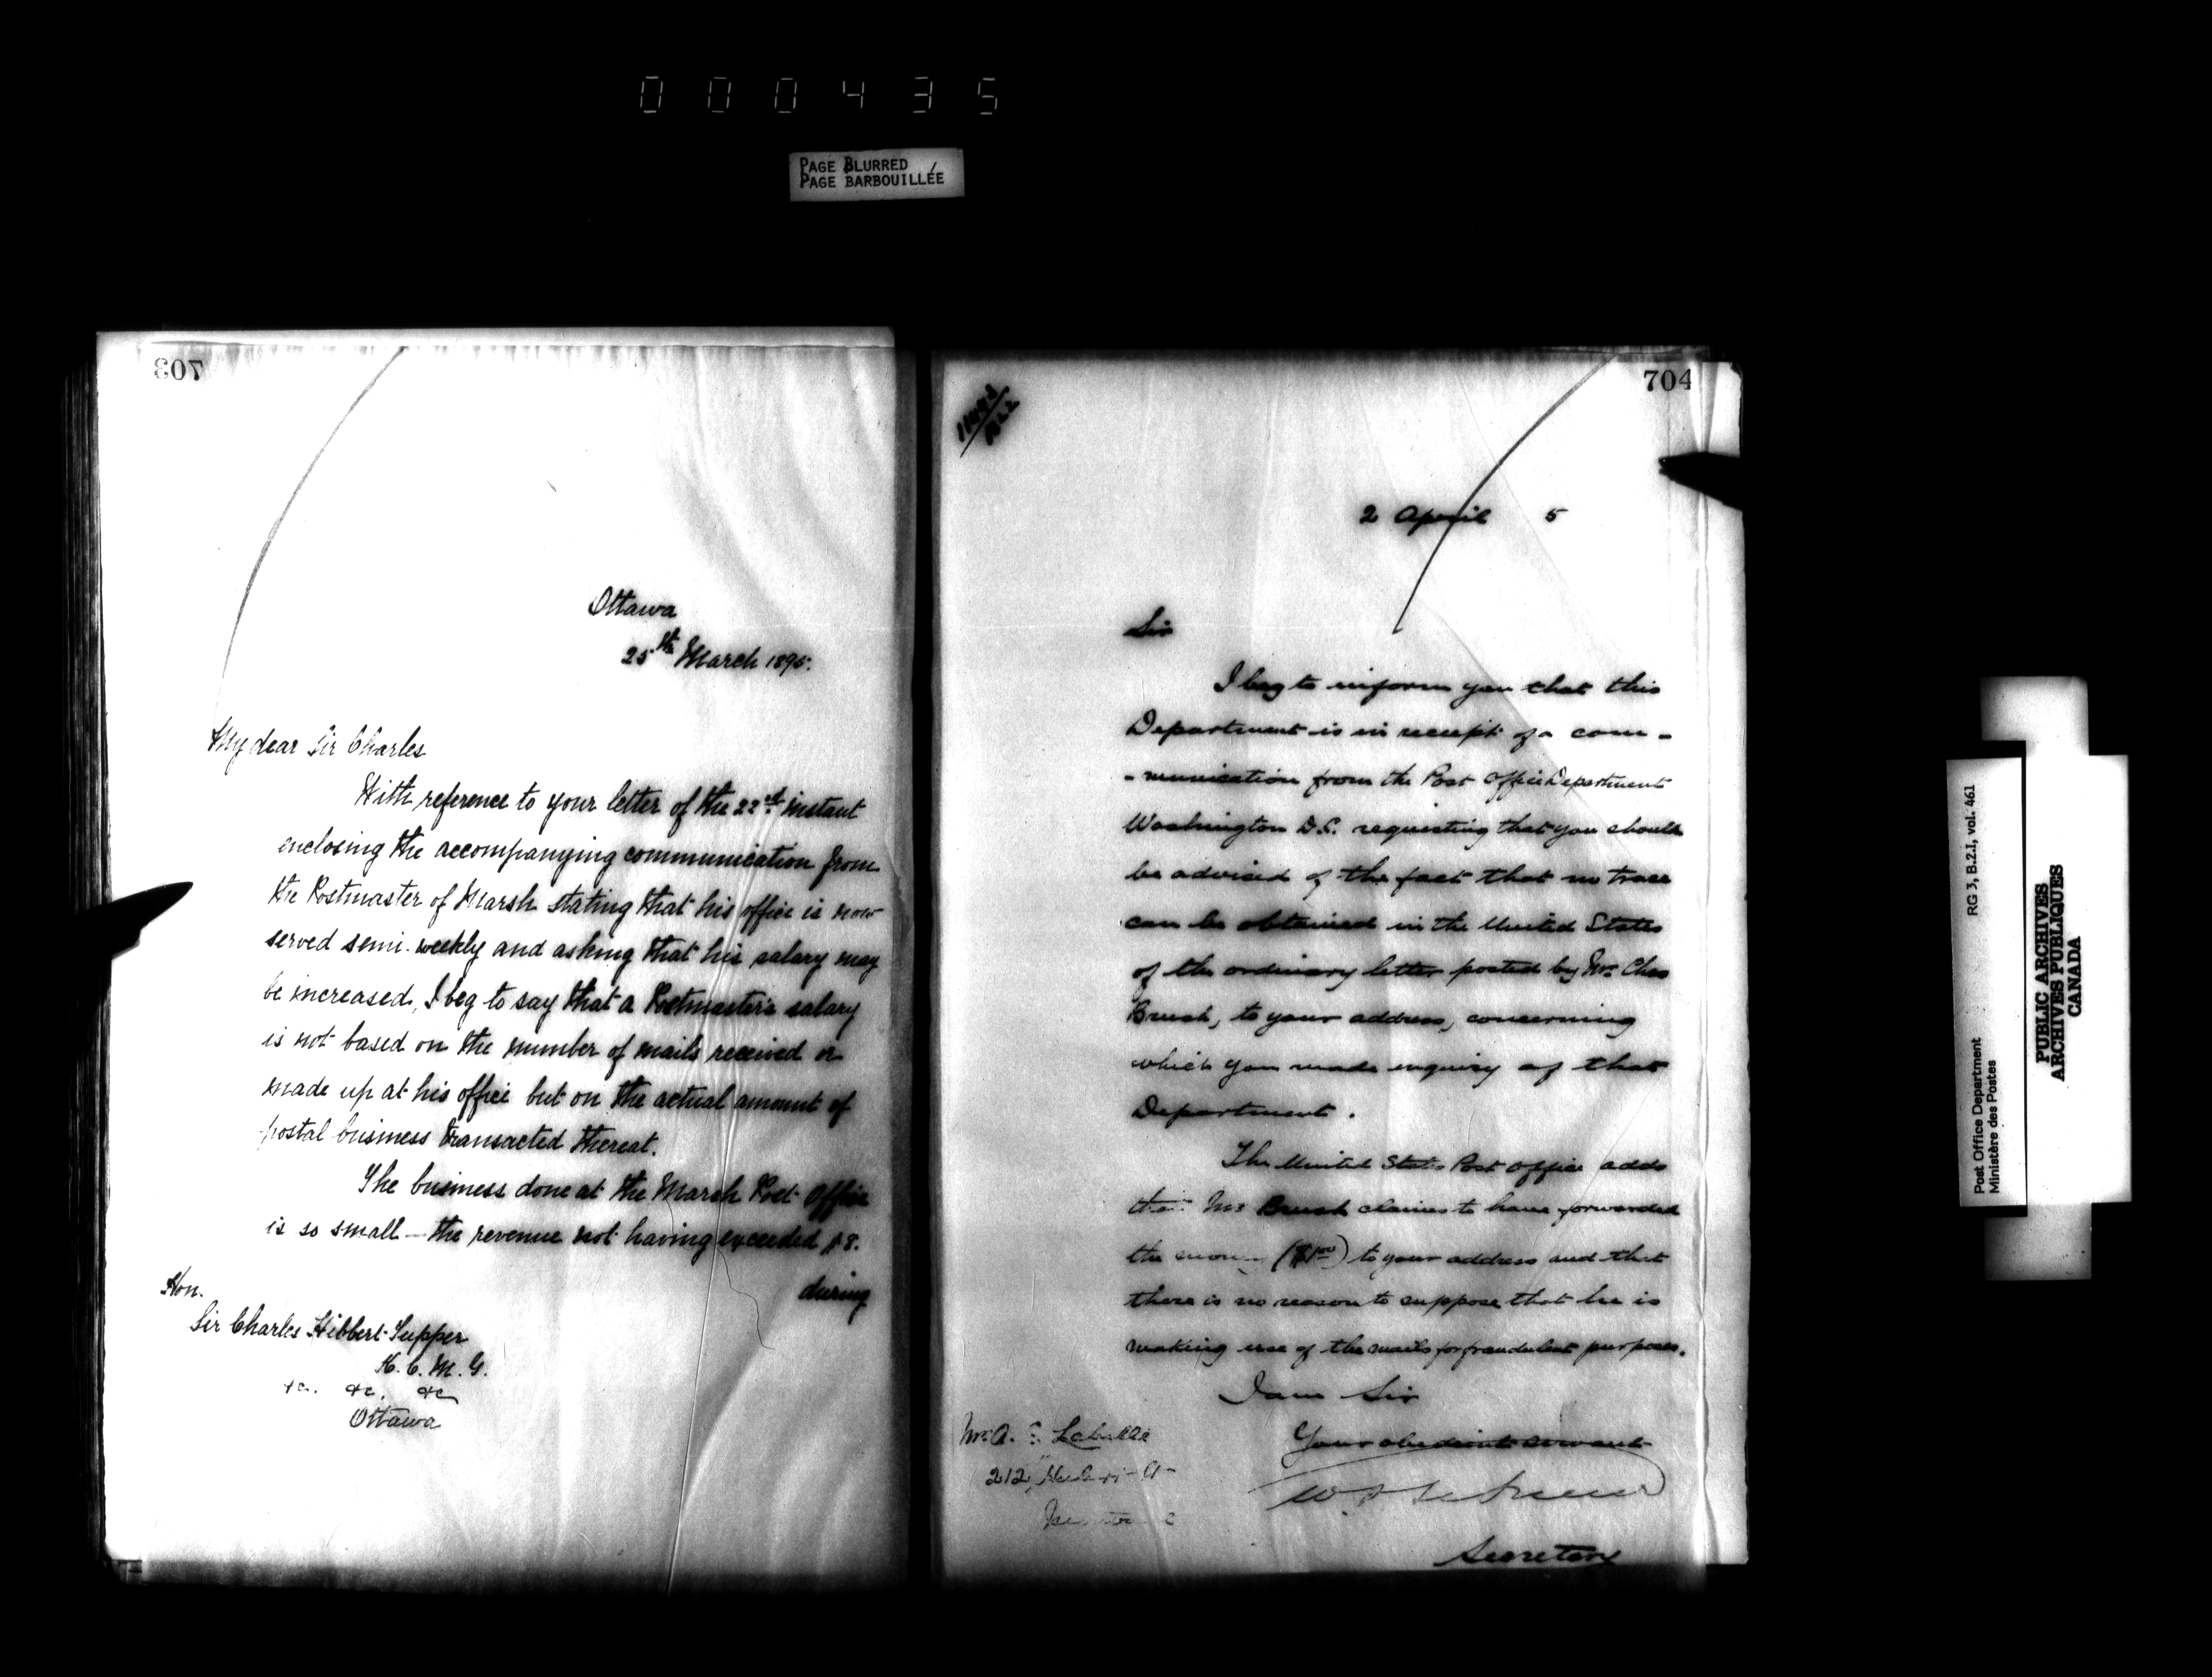 000435
PAGE BLURRED
PAGE BARBOUILLÉE
703
Ottawa
25th March 1895.
My dear Sir Charles
With reference to your letter of the 22nd instant
enclosing the accompanying communication from
the Postmaster of Marsh stating that his office is now
served semi-weekly and asking that his salary may
be increased, I beg to say that a Postmaster's salary
is not based on the number of mails received or
made up at his office but on the actual amount of
postal business transacted thereat.
The business done at the Marsh Post Office
is so small - the revenue not having exceeded $8.
during
Hon.
Sir Charles Hibbert Tupper
K.C.M.G.
&c. &c. &c
Ottawa
704
2 April 5
Sir
I beg to inform you that this
Department is in receipt of a com-
-munication from the Post Office Department
Washington D.C. requesting that you should
be advised of the fact that no trace
can be obtained in the United States
of the ordinary letter posted by Mr. Chas
Brush, to your address, concerning
which you made enquiry of that
Department.
The United States Post Office adds
that Mr Brush claims to have forwarded
the money ($1.00) to your address and that
there is no reason to suppose that he is
making use of the mails for fraudulent purposes.
I am Sir
Your obedient servant
Secretary
Mr. A. Labelle
212
Post Office Department
Ministère des Postes
RG 3, B.2.I, vol. 461
PUBLIC ARCHIVES
ARCHIVES PUBLIQUES
CANADA